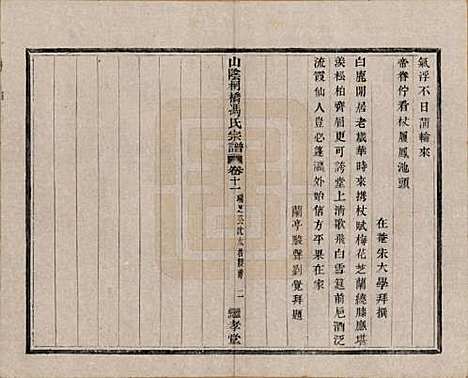 氣浮不日蒲輪來
帝眷佇看杖履鳳池頭
在菴朱大學拜撰
白鹿閒居老歲華時來携杖賦梅花芝蘭繞膝應堪
羨松柏齊眉更可誇堂上清歌飛白雪筵前巵酒泛
流霞仙人豈必蓬瀛外始信方平果在家
蘭亭駿聲劉覺拜題
山陰桐橋馮氏宗譜
卷十一
一
繼孝堂